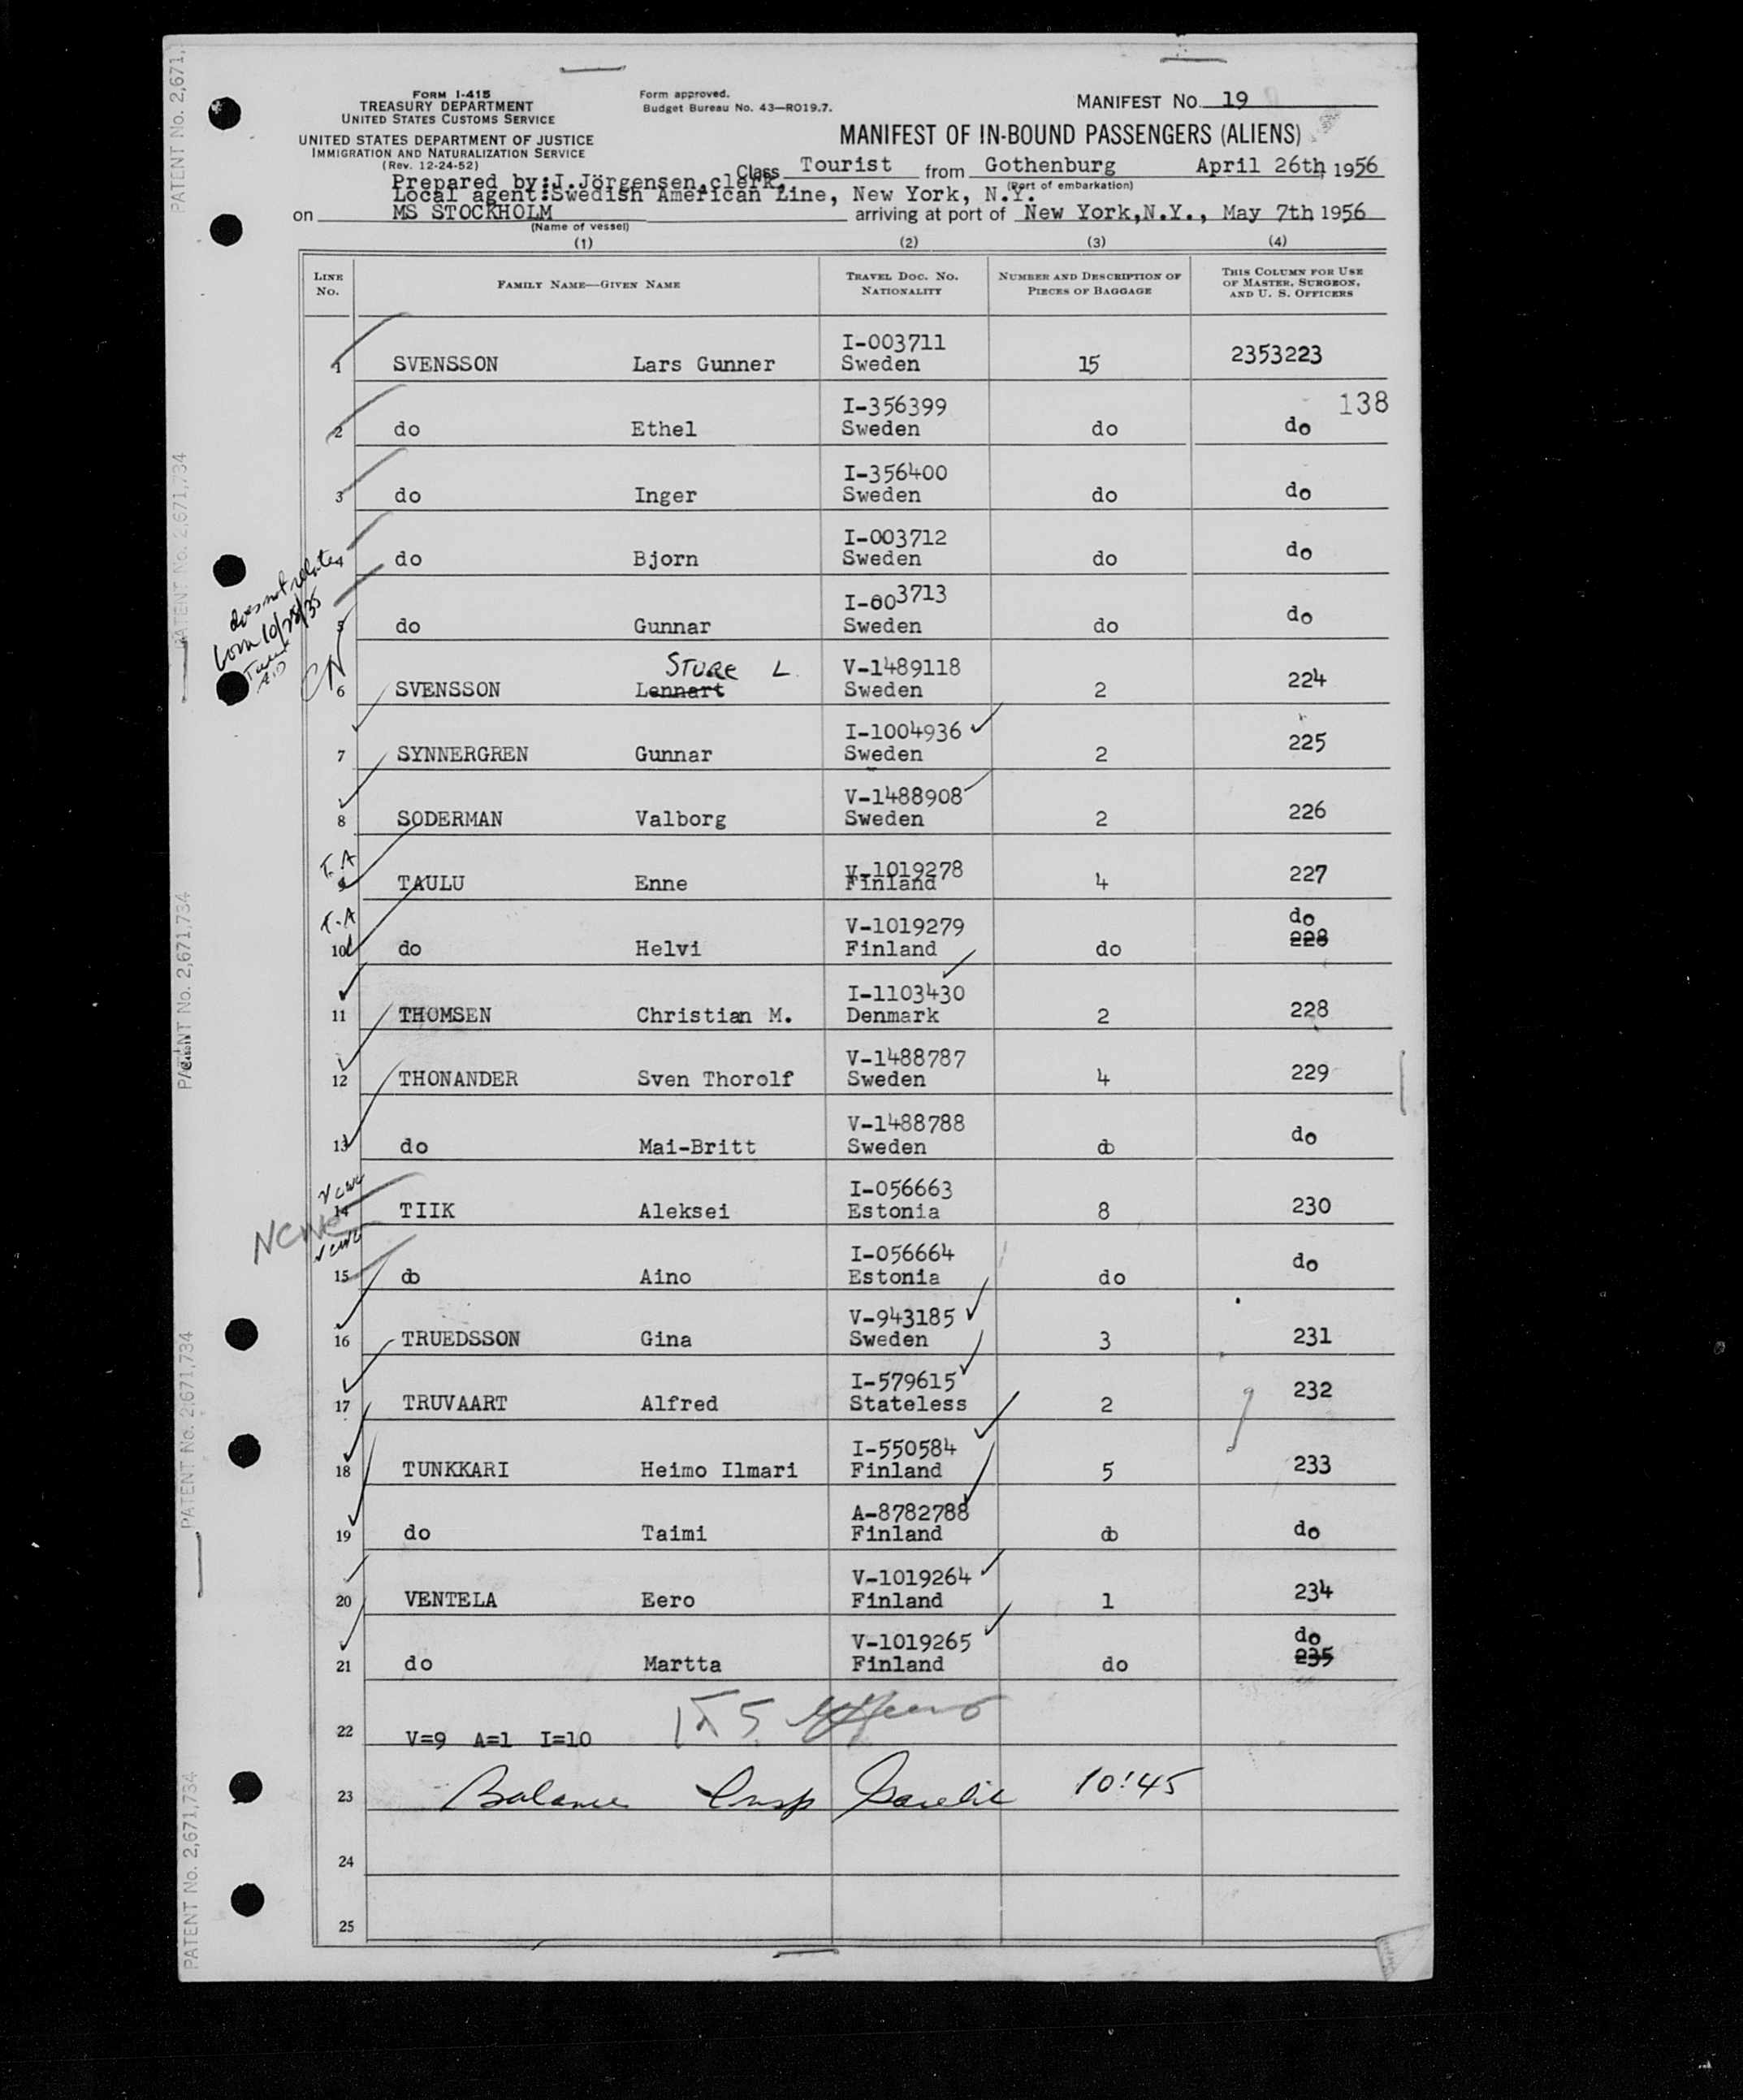 FORM I-415
TREASURY DEPARTMENT
UNITED STATES CUSTOMS SERVICE
UNITED STATES DEPARTMENT OF JUSTICE
IMMIGRATION AND NATURALIZATION SERVICE
(Rev. 12-24-52)
Form approved.
Budget Bureau No. 43—RO19.7.
MANIFEST NO. 19
MANIFEST OF IN-BOUND PASSENGERS (ALIENS)
Class Tourist from Gothenburg April 26th, 1956
(Port of embarkation)
Prepared by:J.Jörgensen,clerk,
Local agent:Swedish American Line, New York, N.Y.
on MS STOCKHOLM arriving at port of New York,N.Y., May 7th 1956
(Name of vessel)
(1) (2) (3) (4)
LINE NO. FAMILY NAME—GIVEN NAME TRAVEL DOC. NO. NATIONALITY NUMBER AND DESCRIPTION OF PIECES OF BAGGAGE THIS COLUMN FOR USE OF MASTER, SURGEON, AND U. S. OFFICERS
1 SVENSSON Lars Gunner I-003711 Sweden 15 2353223
138
2 do Ethel I-356399 Sweden do do
3 do Inger I-356400 Sweden do do
4 do Bjorn I-003712 Sweden do do
does not relate
born 10/28/35
5 do Gunnar I-003713 Sweden do do
CN
STURE L.
6 SVENSSON Lennart V-1489118 Sweden 2 224
7 SYNNERGREN Gunnar I-1004936 Sweden 2 225
8 SODERMAN Valborg V-1488908 Sweden 2 226
T.A
9 TAULU Enne V-1019278 Finland 4 227
T.A
10 do Helvi V-1019279 Finland do do 228
11 THOMSEN Christian M. I-1103430 Denmark 2 228
12 THONANDER Sven Thorolf V-1488787 Sweden 4 229
13 do Mai-Britt V-1488788 Sweden do do
14 TIIK Aleksei I-056663 Estonia 8 230
15 do Aino I-056664 Estonia do do
16 TRUEDSSON Gina V-943185 Sweden 3 231
17 TRUVAART Alfred I-579615 Stateless 2 232
18 TUNKKARI Heimo Ilmari I-550584 Finland 5 233
19 do Taimi A-8782788 Finland do do
20 VENTELA Eero V-1019264 Finland 1 234
21 do Martta V-1019265 Finland do do 235
22 V=9 A=1 I=10
23 Balance Insp 10:45
24
25
PATENT No. 2,671,
PATENT No. 2,671,734
PATENT No. 2,671,734
PATENT No. 2,671,734
PATENT No. 2,671,734